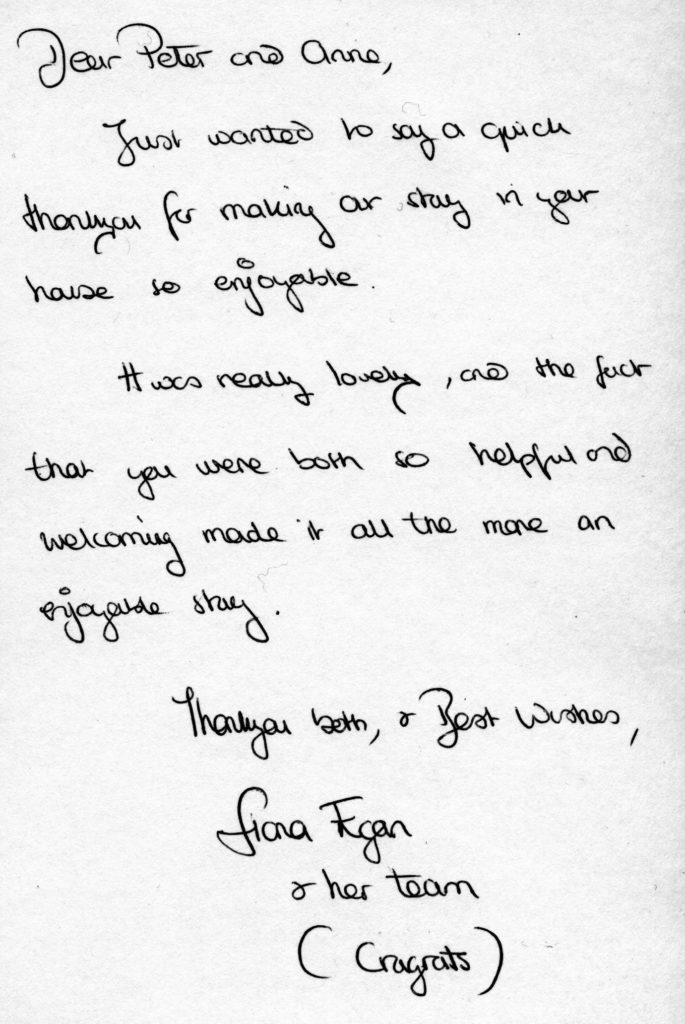 Dear Peter and Anne,
Just wanted to say a quick
thankyou for making our stay in your
house so enjoyable.
It was really lovely, and the fact
that you were both so helpful and
welcoming made it all the more an
enjoyable stay.
Thankyou both, & Best Wishes,
Fiona Egan
& her team
(Cragrats)